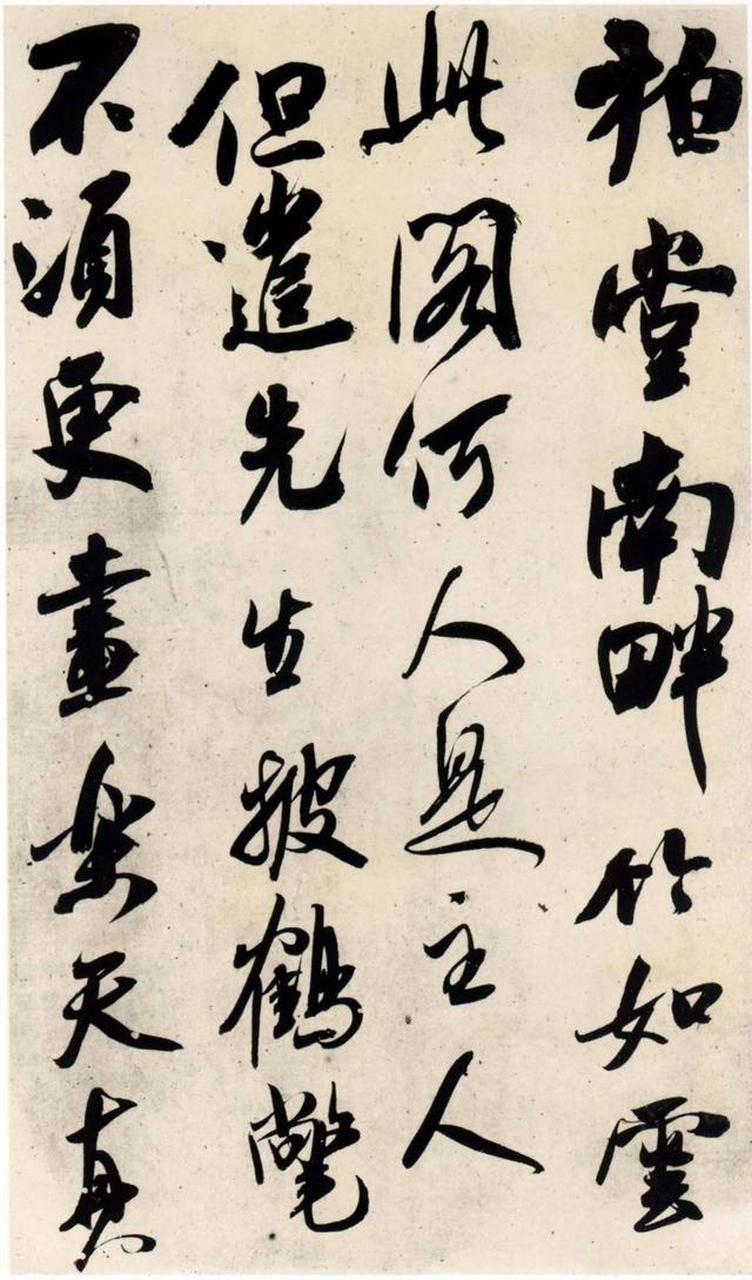 栢堂南畔竹如雲
此閣何人是主人
但遣先生披鶴氅
不須更畫樂天真